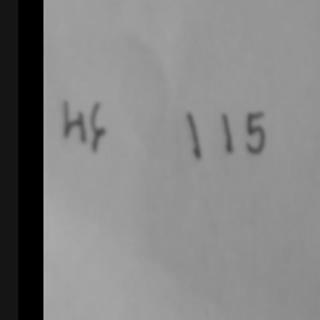 Hg 115